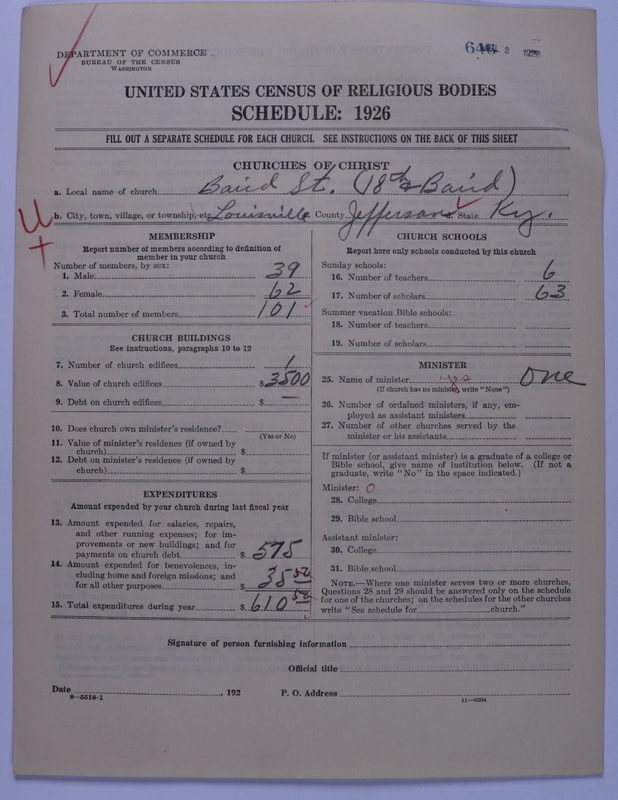 DEPARTMENT OF COMMERCE
BUREAU OF THE CENSUS
WASHINGTON
UNITED STATES CENSUS OF RELIGIOUS BODIES
SCHEDULE: 1926
FILL OUT A SEPARATE SCHEDULE FOR EACH CHURCH. SEE INSTRUCTIONS ON THE BACK OF THIS SHEET
CHURCHES OF CHRIST
a. Local name of church Baird St. (18th & Baird)
b. City, town, village, or township, etc. Louisville c. County Jefferson d. State Ky.
U
+
MEMBERSHIP
Report number of members according to definition of
member in your church
Number of members, by sex:
1. Male 39
2. Female 62
3. Total number of members 101
CHURCH BUILDINGS
See instructions, paragraphs 10 to 12
7. Number of church edifices 1
8. Value of church edifices $ 3500
9. Debt on church edifices $ —
10. Does church own minister's residence?
(Yes or No)
11. Value of minister's residence (if owned by
church) $
12. Debt on minister's residence (if owned by
church) $
EXPENDITURES
Amount expended by your church during last fiscal year
13. Amount expended for salaries, repairs,
and other running expenses; for im-
provements or new buildings; and for
payments on church debt $ 575
14. Amount expended for benevolences, in-
cluding home and foreign missions; and
for all other purposes $ 35 50
15. Total expenditures during year $ 610 50
CHURCH SCHOOLS
Report here only schools conducted by this church
Sunday schools:
16. Number of teachers 6
17. Number of scholars 63
Summer vacation Bible schools:
18. Number of teachers
19. Number of scholars
MINISTER
25. Name of minister yes One
(If church has no minister, write "None")
26. Number of ordained ministers, if any, em-
ployed as assistant ministers
27. Number of other churches served by the
minister or his assistants
If minister (or assistant minister) is a graduate of a college or
Bible school, give name of institution below. (If not a
graduate, write "No" in the space indicated.)
Minister: O
28. College
29. Bible school
Assistant minister:
30. College
31. Bible school
NOTE.—Where one minister serves two or more churches,
Questions 28 and 29 should be answered only on the schedule
for one of the churches; on the schedules for the other churches
write "See schedule for church."
Signature of person furnishing information
Official title
Date , 192 P. O. Address
8—5518-1
11—6394